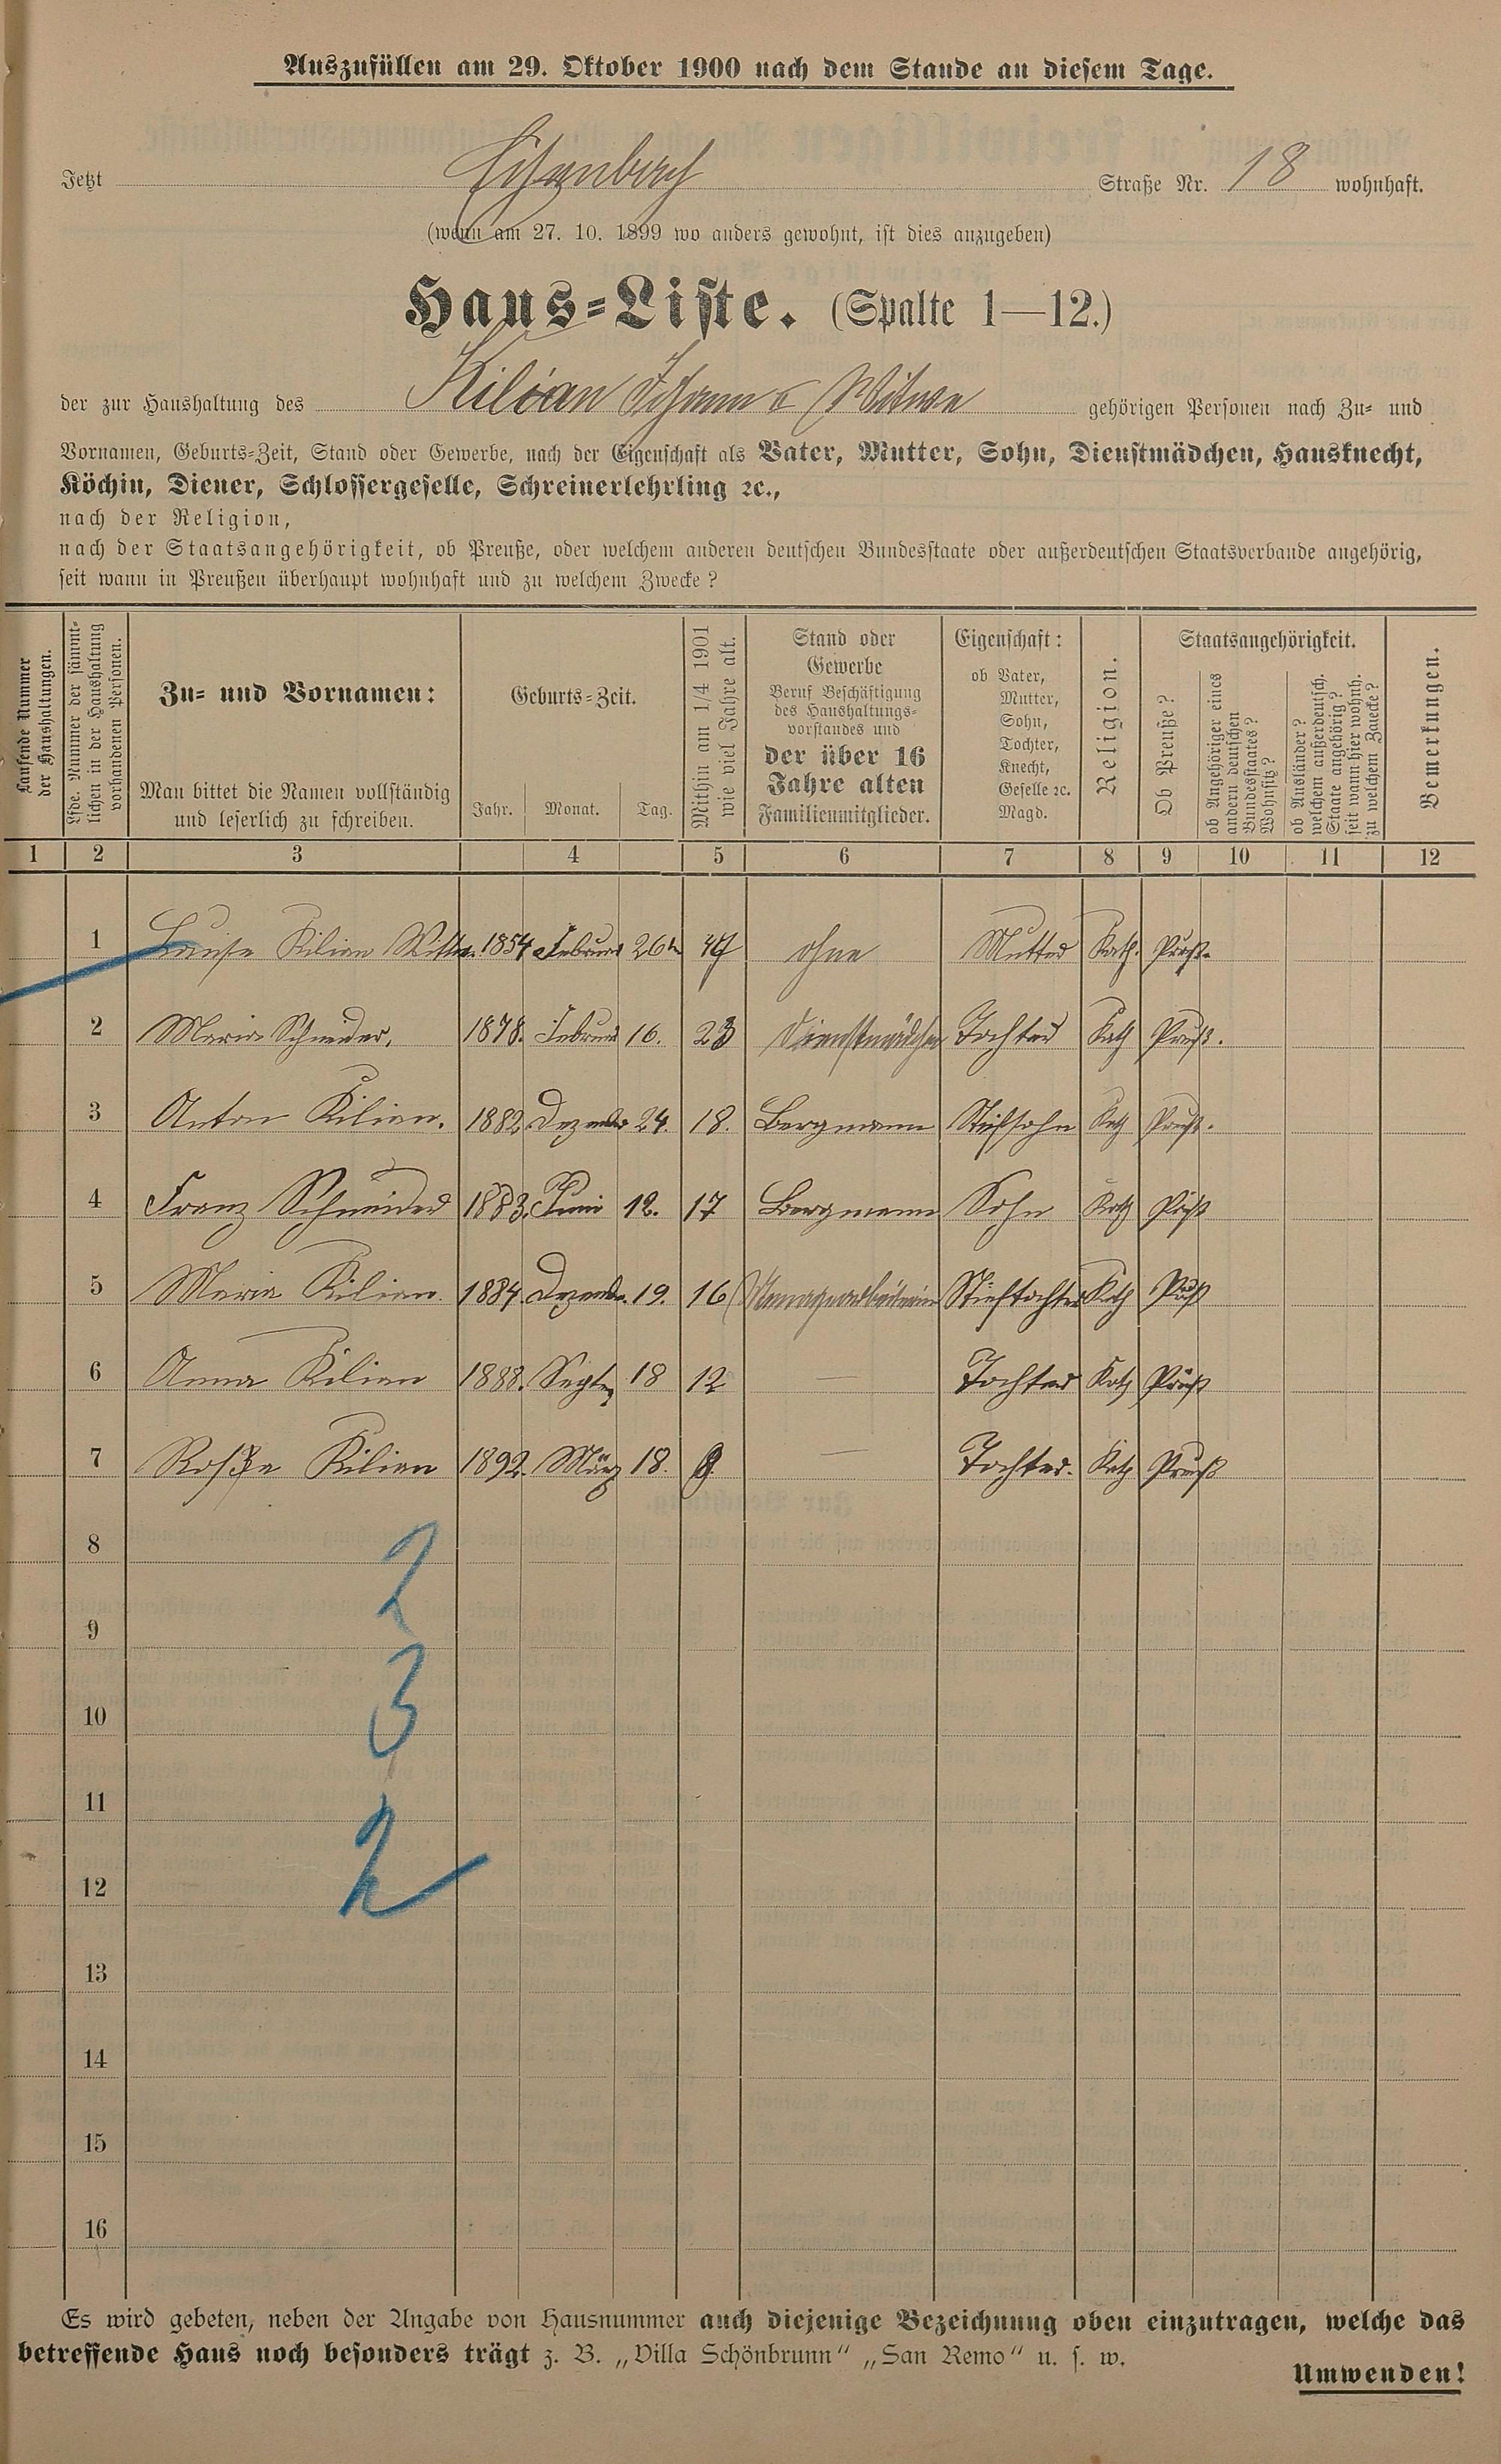 Auszufüllen am 29. Oktober 1900 nach dem Stande an diesem Tage.
Jetzt Straße Nr. 18 wohnhaft.
(wenn am 27. 10. 1899 wo anders gewohnt, ist dies anzugeben)
Haus-Liste. (Spalte 1—12.)
der zur Haushaltung des Kilian Johann Witwe gehörigen Personen nach Zu- und
Vornamen, Geburts-Zeit, Stand oder Gewerbe, nach der Eigenschaft als Vater, Mutter, Sohn, Dienstmädchen, Hausknecht,
Köchin, Diener, Schlossergeselle, Schreinerlehrling ꝛc.,
nach der Religion,
nach der Staatsangehörigkeit, ob Preuße, oder welchem anderen deutschen Bundesstaate oder außerdeutschen Staatsverbande angehörig,
seit wann in Preußen überhaupt wohnhaft und zu welchem Zwecke?
Laufende Nummer
der Haushaltungen.
Lfde. Nummer der sämmt-
lichen in der Haushaltung
vorhandenen Personen.
Zu- und Vornamen:
Man bittet die Namen vollständig
und leserlich zu schreiben.
Geburts-Zeit.
Jahr. Monat. Tag.
Mithin am 1/4 1901
wie viel Jahre alt.
Stand oder
Gewerbe
Beruf Beschäftigung
des Haushaltungs-
vorstandes und
der über 16
Jahre alten
Familienmitglieder.
Eigenschaft:
ob Vater,
Mutter,
Sohn,
Tochter,
Knecht,
Geselle ꝛc.
Magd.
Religion.
Staatsangehörigkeit.
Ob Preuße?
ob Angehöriger eines
andern deutschen
Bundesstaates?
Wohnsitz?
ob Ausländer?
welchem außerdeutsch.
Staate angehörig?
seit wann hier wohnh.
zu welchem Zwecke?
Bemerkungen.
1 2 3 4 5 6 7 8 9 10 11 12
1 Louise Kilian 1854 Februar 26 47 ohne Mutter Kath. Preuß.
2 Maria Schneider, 1878. Februar 16. 23 Dienstmädchen Tochter Kath Preuß.
3 Anton Kilian. 1882 Dezember 24. 18. Bergmann Stiefsohn Kath Preuß.
4 Franz Schneider 1883. Juni 12. 17 Bergmann Sohn Kath Preuß
5 Maria Kilian. 1884. Dezember. 19. 16 Stieftochter Kath Preuß
6 Anna Kilian 1888. Septe 18 12 — Tochter Kath Preuß
7 Kilian 1892. März 18. 9. — Tochter. Kath Preuß
8
9
10
11
12
13
14
15
16
2
3
2
Es wird gebeten, neben der Angabe von Hausnummer auch diejenige Bezeichnung oben einzutragen, welche das
betreffende Haus noch besonders trägt z. B. „Villa Schönbrunn“ „San Remo“ u. s. w.
Umwenden!